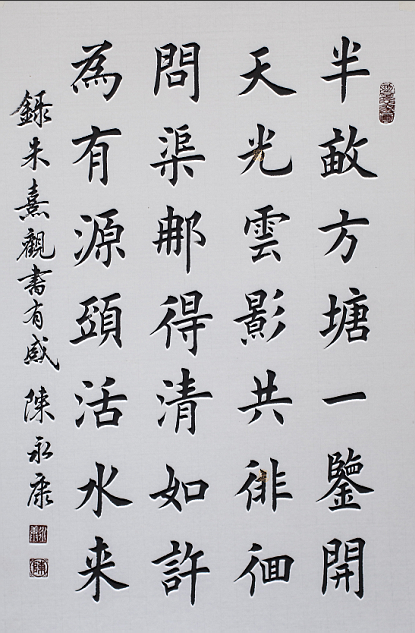 半畝方塘一鑒開
天光雲影共徘徊
問渠那得清如許
為有源頭活水来
録朱熹觀書有感 陳永康